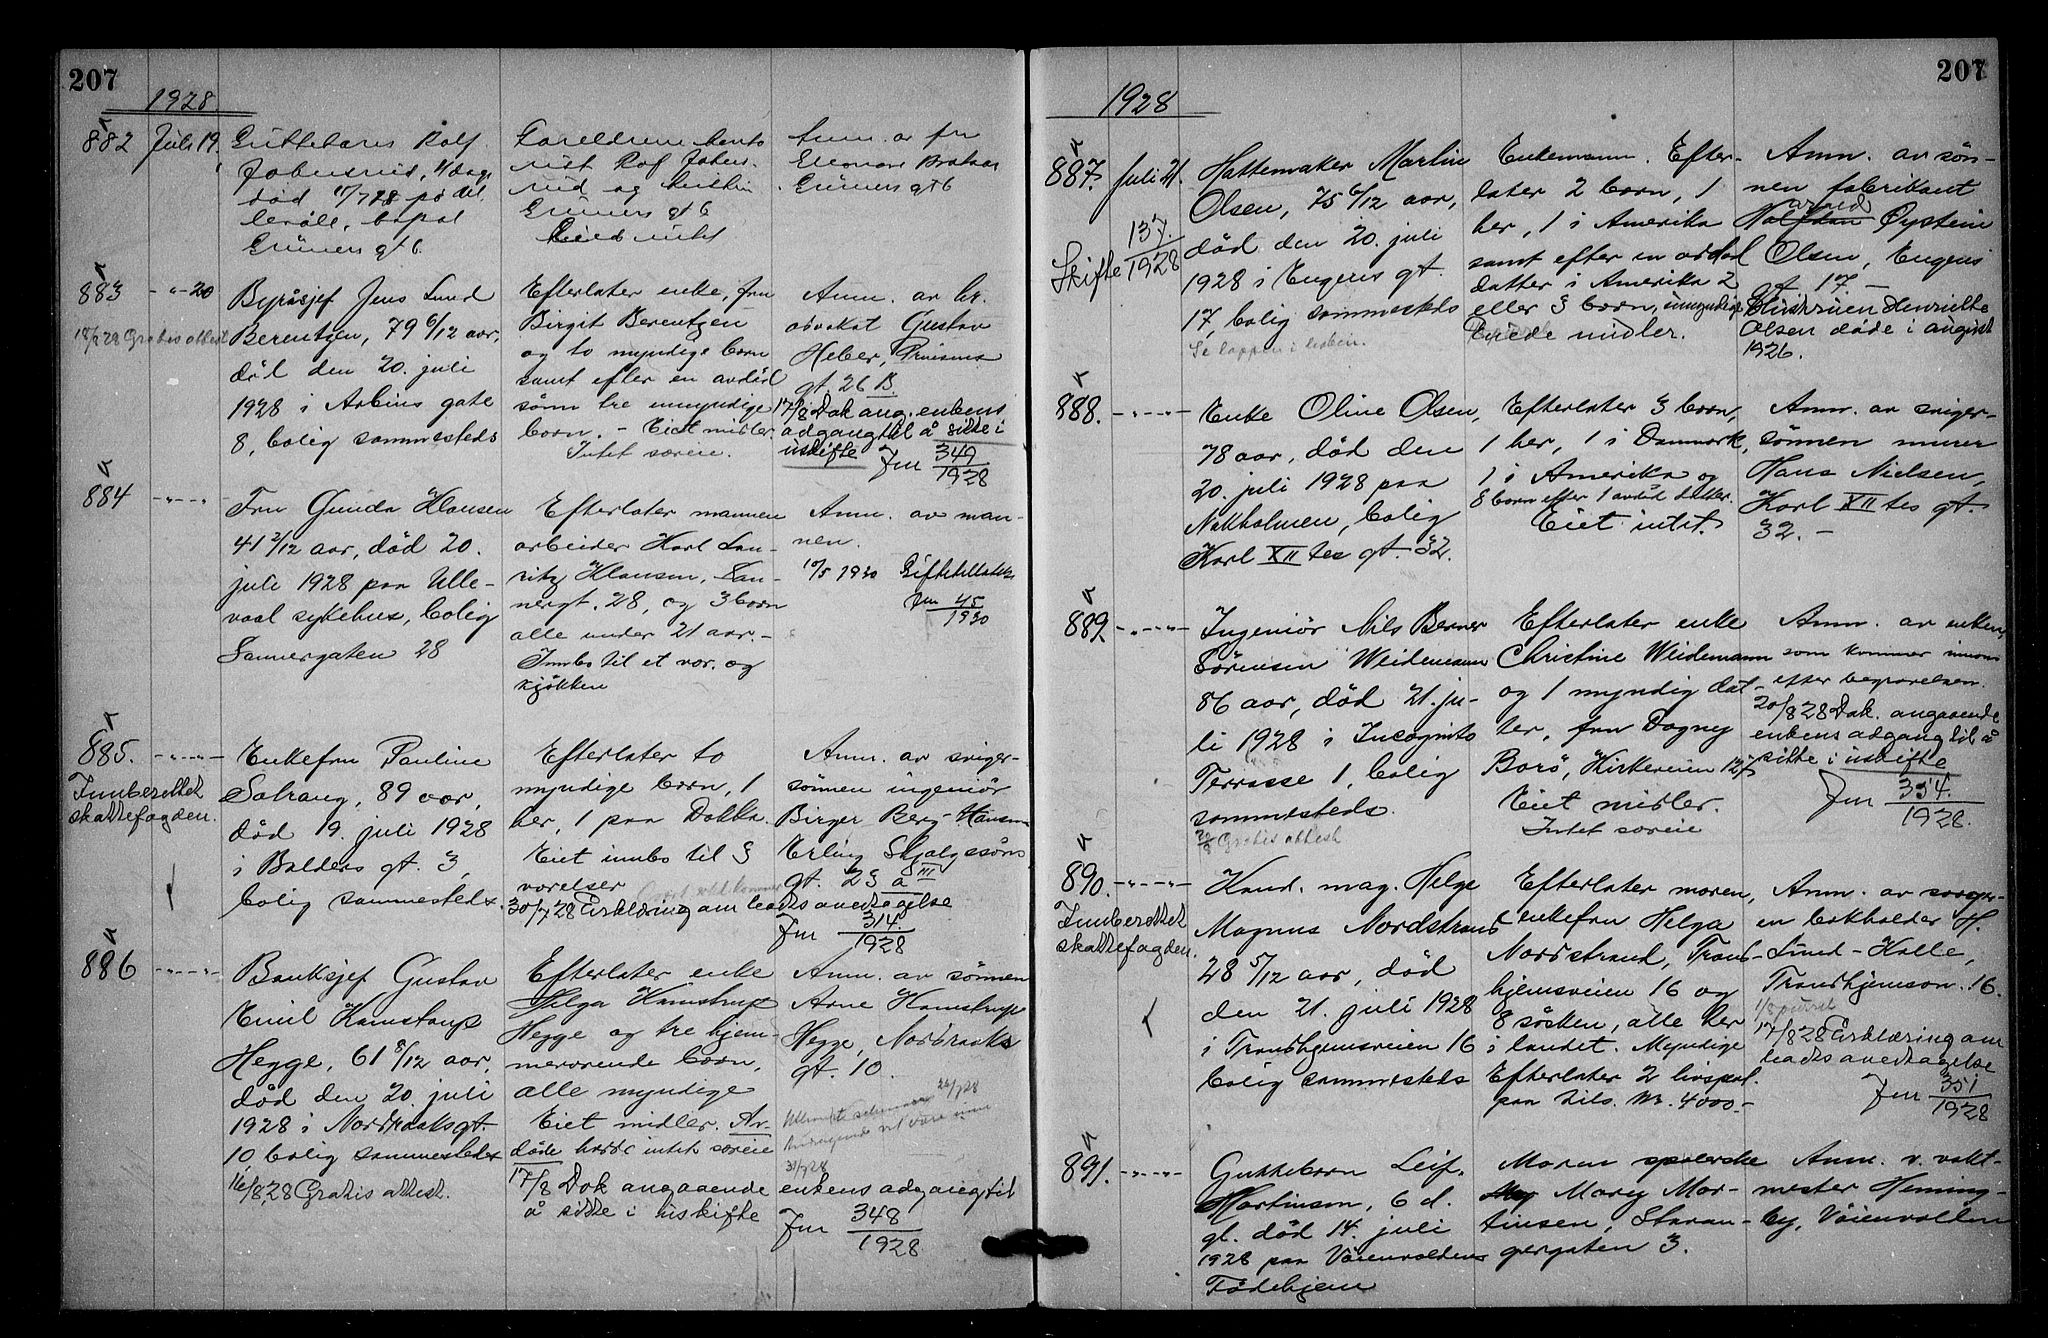 207
1928
882 Juli 19.
Guttebarn Rolf
Johnsrud, 1/2 dag,
død 17/7 28 på
bopæl
Grüners gt 6.
Foreldrene konto
rist Rolf Johns
rud og Kristin
Grüners gt 6
Eied intet
Anm. av fru
Eleonore
Grüners gt 6
883 -"- 20
18/8 28 Gratis attest
Byråsjef Jens Lund
Berentzen, 79 6/12 aar,
død den 20. juli
1928 i Arbins gate
8, bolig sammesteds
Efterlater enke, fru
Birgit Berentzen
og to myndige barn
samt efter en avdød
sønn tre umyndige
barn. - Eiet midler
Intet særeie.
Anm. av hr.
advokat Gustav
Heber, Pruisens
gt. 26 B.
17/8 Dok ang. enkens
adgang til å sitte i
uskifte Jnr 349/1928
884 -"-"-
Fru Gunda Klausen
41 2/12 aar, død 20.
juli 1928 paa Ulle-
vaal sykehus, bolig
Sannergaten 28
Efterlater mannen
arbeider Karl Lau-
ritz Klausen, San-
nergt. 28, og 3 barn
alle under 21 aar.-
Innbo til et vær. og
kjøkken
Anm. av man-
nen.
10/5 1930 Giftetillatelse
Jnr 45/1930
885. -"-"-
Innberettet
skattefogden.
Enkefru Pauline
Solrang, 89 aar,
død 19. juli 1928
i Balders gt. 3,
bolig sammesteds.
Efterlater to
myndige barn, 1
her, 1 paa Dokka.
Eiet innbo til 3
værelser
30/7 28 Erklæring om boets overtagelse
Jnr 314/1928
Anm. av sviger-
sønnen ingeniør
Birger Berg-Hansen
Erling Skjalgssøns
gt. 23 a III
886 -"-"-
Banksjef Gustav
Emil Kamstrup
Hegge, 61 8/12 aar,
død den 20. juli
1928 i Nordraaksgt
10 bolig sammesteds
16/8 28 Gratis attest.
Efterlater enke
Helga Kamstrup
Hegge og tre hjem-
meværende barn,
alle myndige
Eiet midler. Av-
døde hadde intet særeie
17/8 Dok angaaende
å sitte i uskifte
Anm. av sønnen
Arne Kamstrup
Hegge, Nordraaks
gt. 10
26/7 28
31/7 28
enkens adgang til
Jnr 348/1928
207
1928
887. Juli 21.
Skifte 137./1928
Hattemaker Martin
Olsen, 75 6/12 aar,
død den 20. juli
1928 i Eugens gt.
17, bolig sammesteds
Se lappen i boken.
Enkemann. Efter-
later 2 barn, 1
her, 1 i Amerika
samt efter en avdød
datter i Amerika 2
eller 3 barn, umyndige
Eiede midler.
Anm. av søn-
nen fabrikant
Øystein
Olsen, Eugens
gt 17. -
Hustruen Henriette
Olsen døde i august
1926.
888. -"-"-
Enke Oline Olsen,
78 aar, død den
20. juli 1928 paa
Nakholmen, bolig
Karl XII tes gt. 32.
Efterlater 3 barn,
1 her, 1 i Danmark,
1 i Amerika og
8 barn efter 1 avdød datter.
Eiet intet.
Anm. av sviger-
sønnen murer
Hans Nielsen,
Karl XII tes gt.
32. -
889. -"-"-
Ingeniør Nils Berner
Sørensen Weidemann
86 aar, død 21. ju-
li 1928 i Incognito
Terrasse 1, bolig
sammesteds.
20/8 Gratis attest
Efterlater enke
Christine Weidemann
og 1 myndig dat-
ter, fru Dagny
Borø, Kirkeveien 127
Eiet midler.
Intet særeie
Anm. av enken
som kommer innom
efter begravelsen.
20/8 28 Dok. angaaende
enkens adgang til å
sitte i uskifte
Jnr 354./1928.
890. -"-"-
Innberettet
skattefogden.
Kand. mag. Helge
Magnus Nordstrand
28 5/12 aar, død
den 21. juli 1928
i Trondhjemsveien 16
bolig sammesteds
Efterlater moren,
enkefru Helga
Nordstrand, Trond-
hjemsveien 16 og
8 søsken, alle her
i landet. Myndige
Efterlater 2 livspol.
paa tils. kr. 4000.-
Anm. av svoger-
en bokholder H.
Lund-Kalle,
Trondhjemsvn. 16.
1/8 purret
17/8 28 Erklæring om
boets overtagelse
Jnr 351/1928
891. -"-"-
Guttebarn Leif
Martinsen, 6 d.
gl. død 14. juli
1928 paa Vøienvoldens
Fødehjem
Moren spolerske
Mary Mar-
tinsen, Stavan-
gergaten 3.
Anm. v. vakt-
mester Heming-
by, Vøienvolden